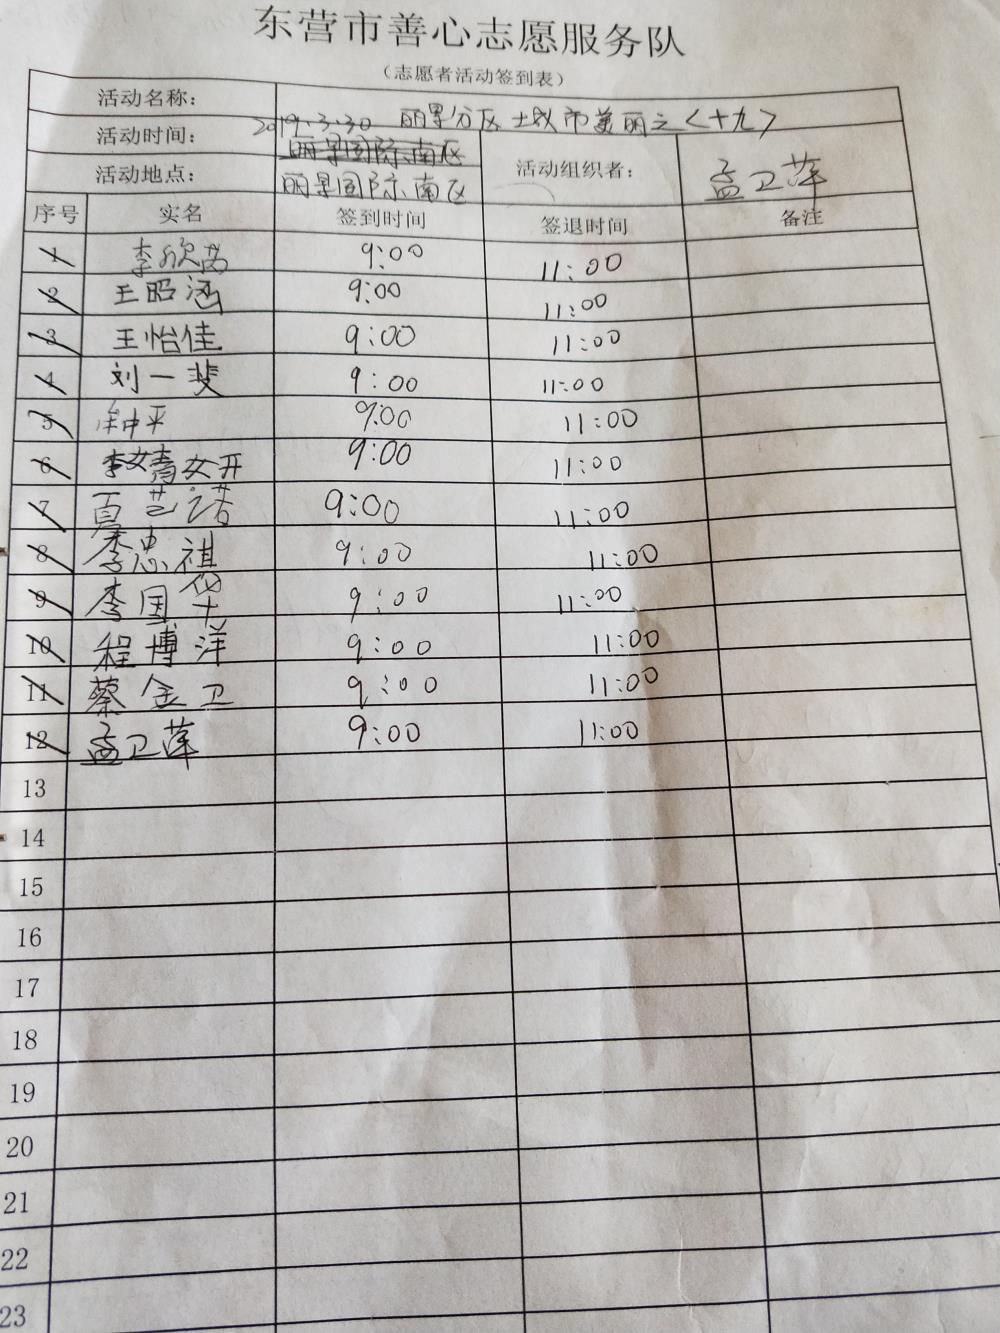 东营市善心志愿服务队
(志愿者活动签到表)
活动名称: 丽景分区 城市美丽之<十九>
活动时间: 2019-3-30 丽景国际南区
活动地点: 丽景国际南区 活动组织者: 孟卫萍
序号 实名 签到时间 签退时间 备注
1 李欣 9:00 11:00
2 王昭涵 9:00 11:00
3 王怡佳 9:00 11:00
4 刘一斐 9:00 11:00
5 平 9:00 11:00
6 李婧妍 9:00 11:00
7 夏艺诺 9:00 11:00
8 李思祺 9:00 11:00
9 李国华 9:00 11:00
10 程博洋 9:00 11:00
11 蔡金卫 9:00 11:00
12 孟卫萍 9:00 11:00
13
14
15
16
17
18
19
20
21
22
23